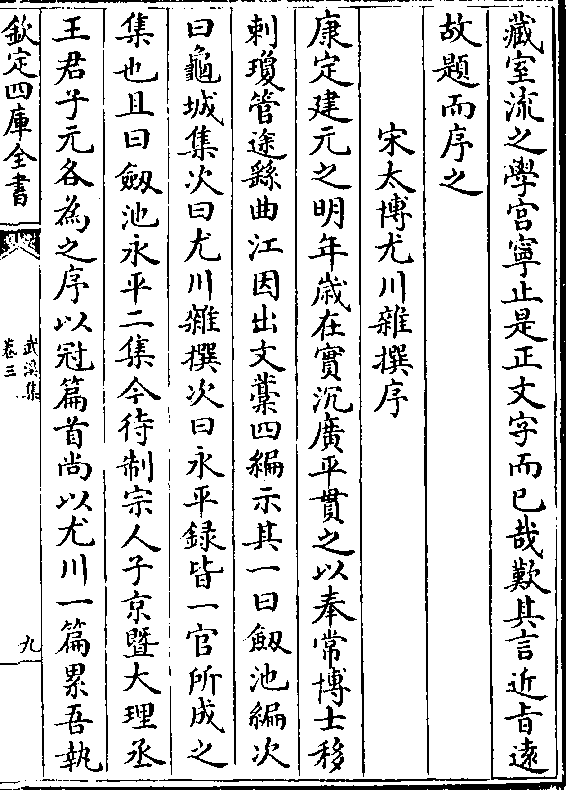 藏室流之學宫寧止是正文字而已哉歎其言近㫖逺
故題而序之
宋太博尤川雜撰序
康定建元之明年歳在實沉廣平貫之以奉常博士移
刺瓊管途繇曲江因出文藁四編示其一曰劔池編次
曰龜城集次曰尤川雜撰次曰永平録皆一官所成之
集也且曰劔池永平二集今待制宗人子京暨大理丞
王君子元各為之序以冠篇首尚以尤川一篇累吾執
欽定四庫全書
武溪集
卷三
九